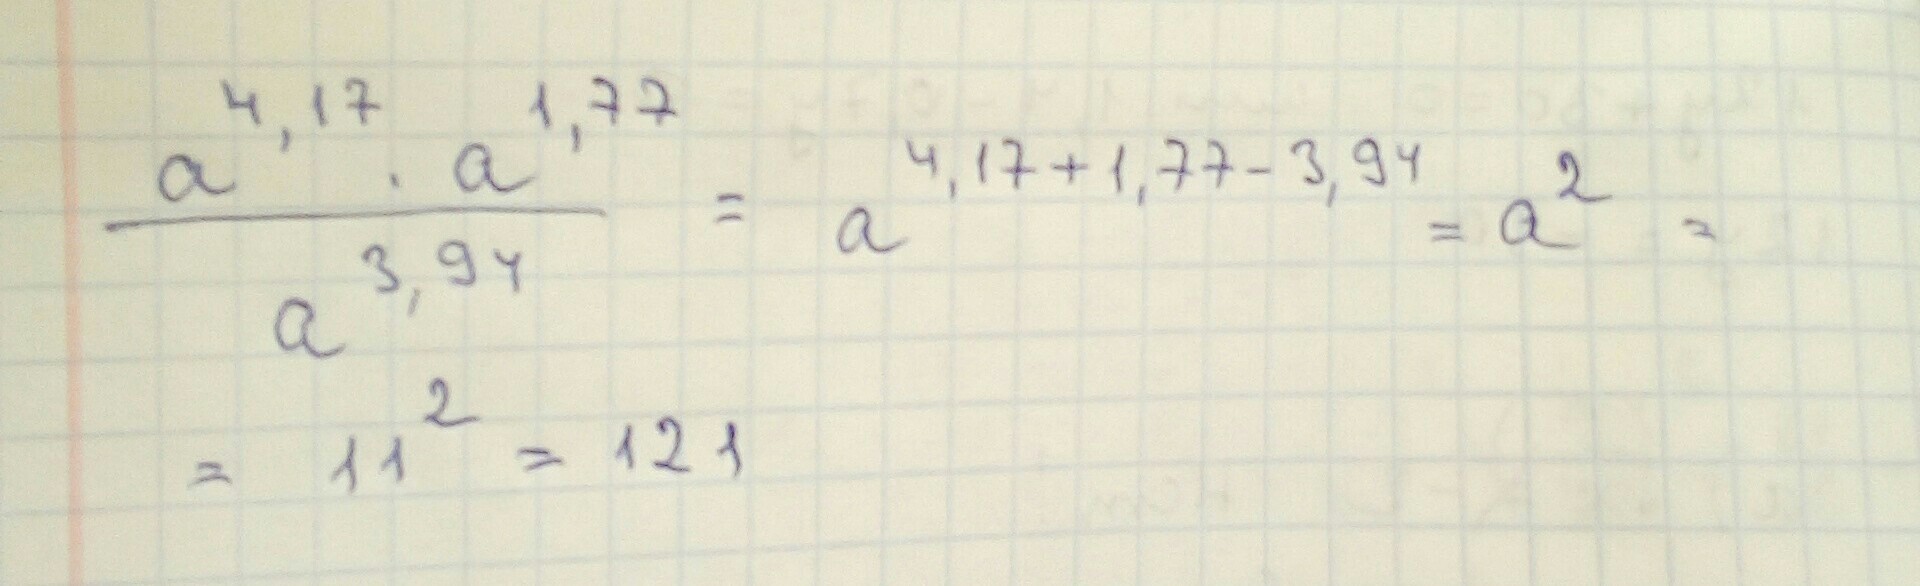 a^4,17 · a^1,77 / a^3,94 = a^4,17+1,77-3,94 = a^2 =
= 11^2 = 121